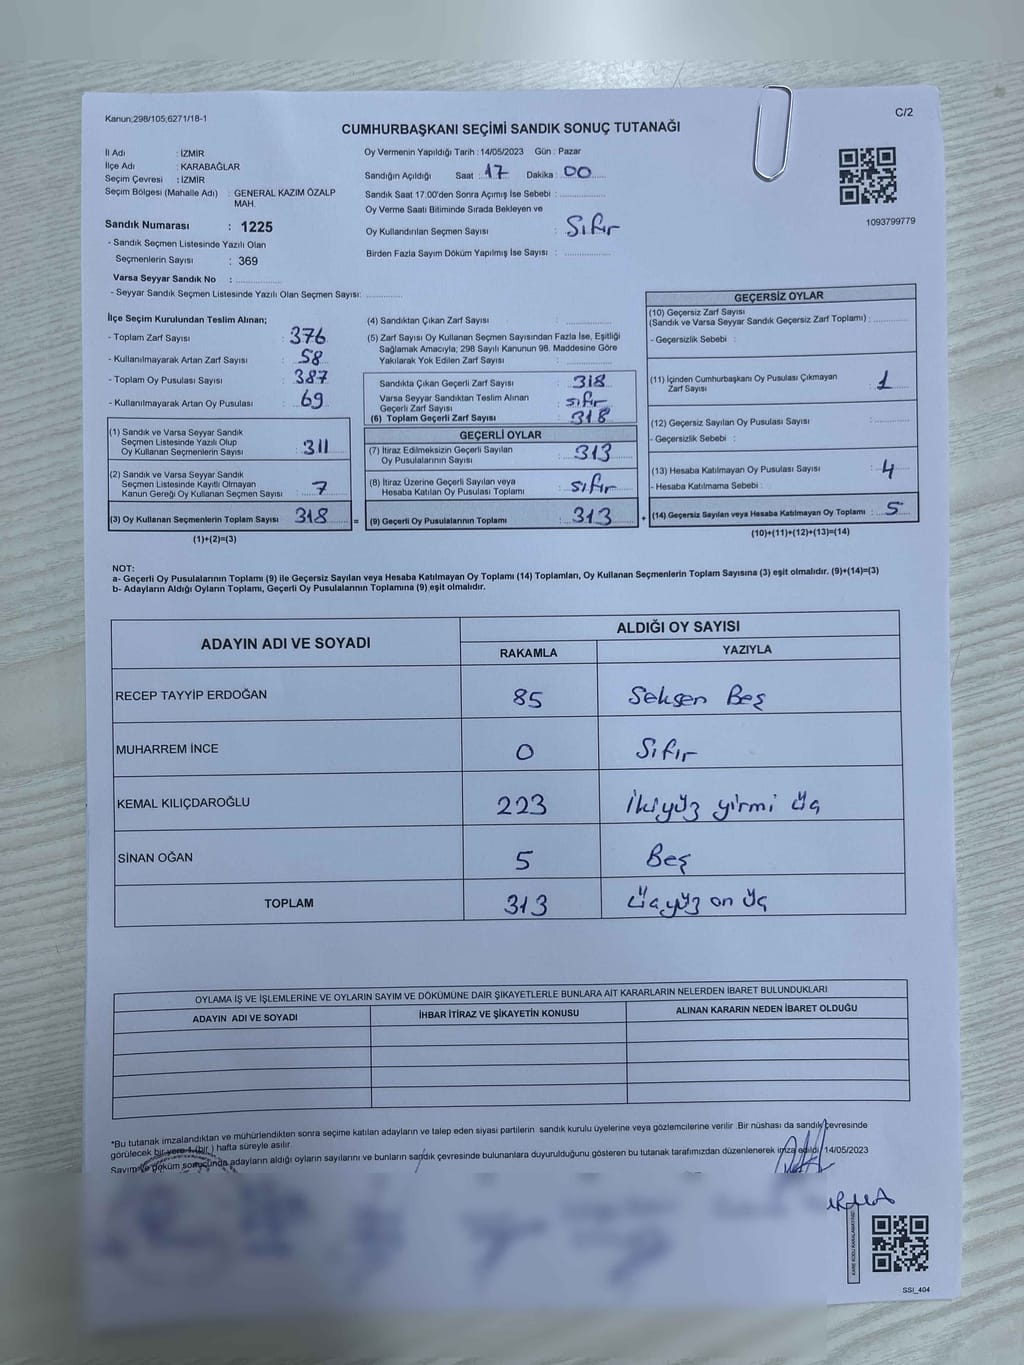 Kanun;298/105;6271/18-1
C/2
CUMHURBAŞKANI SEÇİMİ SANDIK SONUÇ TUTANAĞI
İl Adı : İZMİR
İlçe Adı : KARABAĞLAR
Seçim Çevresi : İZMİR
Seçim Bölgesi (Mahalle Adı) : GENERAL KAZIM ÖZALP
MAH.
Sandık Numarası : 1225
- Sandık Seçmen Listesinde Yazılı Olan
Seçmenlerin Sayısı : 369
Varsa Seyyar Sandık No : ....................
- Seyyar Sandık Seçmen Listesinde Yazılı Olan Seçmen Sayısı: ................
Oy Vermenin Yapıldığı Tarih : 14/05/2023 Gün : Pazar
Sandığın Açıldığı Saat : 17 Dakika : 00
Sandık Saat 17:00'den Sonra Açımış İse Sebebi : ....................
Oy Verme Saati Bitiminde Sırada Bekleyen ve
Oy Kullandırılan Seçmen Sayısı : Sıfır
Birden Fazla Sayım Döküm Yapılmış İse Sayısı : ....................
1093799779
İlçe Seçim Kurulundan Teslim Alınan;
- Toplam Zarf Sayısı : 376
- Kullanılmayarak Artan Zarf Sayısı : 58
- Toplam Oy Pusulası Sayısı : 387
- Kullanılmayarak Artan Oy Pusulası : 69
(1) Sandık ve Varsa Seyyar Sandık
Seçmen Listesinde Yazılı Olup
Oy Kullanan Seçmenlerin Sayısı : 311
(2) Sandık ve Varsa Seyyar Sandık
Seçmen Listesinde Kayıtlı Olmayan
Kanun Gereği Oy Kullanan Seçmen Sayısı : 7
(3) Oy Kullanan Seçmenlerin Toplam Sayısı : 318
(1)+(2)=(3)
(4) Sandıktan Çıkan Zarf Sayısı : ................
(5) Zarf Sayısı Oy Kullanan Seçmen Sayısından Fazla İse, Eşitliği
Sağlamak Amacıyla; 298 Sayılı Kanunun 98. Maddesine Göre
Yakılarak Yok Edilen Zarf Sayısı : ................
Sandıkta Çıkan Geçerli Zarf Sayısı : 318
Varsa Seyyar Sandıktan Teslim Alınan
Geçerli Zarf Sayısı : sıfır
(6) Toplam Geçerli Zarf Sayısı : 318
GEÇERLİ OYLAR
(7) İtiraz Edilmeksizin Geçerli Sayılan
Oy Pusulalarının Sayısı : 313
(8) İtiraz Üzerine Geçerli Sayılan veya
Hesaba Katılan Oy Pusulası Toplamı : sıfır
=
(9) Geçerli Oy Pusulalarının Toplamı : 313
+
GEÇERSİZ OYLAR
(10) Geçersiz Zarf Sayısı
(Sandık ve Varsa Seyyar Sandık Geçersiz Zarf Toplamı) : ............
- Geçersizlik Sebebi :
(11) İçinden Cumhurbaşkanı Oy Pusulası Çıkmayan
Zarf Sayısı : 1
(12) Geçersiz Sayılan Oy Pusulası Sayısı : ............
- Geçersizlik Sebebi :
(13) Hesaba Katılmayan Oy Pusulası Sayısı : 4
- Hesaba Katılmama Sebebi :
(14) Geçersiz Sayılan veya Hesaba Katılmayan Oy Toplamı : 5
(10)+(11)+(12)+(13)=(14)
NOT:
a- Geçerli Oy Pusulalarının Toplamı (9) ile Geçersiz Sayılan veya Hesaba Katılmayan Oy Toplamı (14) Toplamları, Oy Kullanan Seçmenlerin Toplam Sayısına (3) eşit olmalıdır. (9)+(14)=(3)
b- Adayların Aldığı Oyların Toplamı, Geçerli Oy Pusulalarının Toplamına (9) eşit olmalıdır.
ADAYIN ADI VE SOYADI
ALDIĞI OY SAYISI
RAKAMLA YAZIYLA
RECEP TAYYİP ERDOĞAN 85 Seksen Beş
MUHARREM İNCE 0 Sıfır
KEMAL KILIÇDAROĞLU 223 İkiyüz yirmi üç
SİNAN OĞAN 5 Beş
TOPLAM 313 Üçyüz on üç
OYLAMA İŞ VE İŞLEMLERİNE VE OYLARIN SAYIM VE DÖKÜMÜNE DAİR ŞİKAYETLERLE BUNLARA AİT KARARLARIN NELERDEN İBARET BULUNDUKLARI
ADAYIN ADI VE SOYADI İHBAR İTİRAZ VE ŞİKAYETİN KONUSU ALINAN KARARIN NEDEN İBARET OLDUĞU
*Bu tutanak imzalandıktan ve mühürlendikten sonra seçime katılan adayların ve talep eden siyasi partilerin sandık kurulu üyelerine veya gözlemcilerine verilir .Bir nüshası da sandık çevresinde
görülecek bir yere 1 (bir ) hafta süreyle asılır.
Sayım ve döküm sonucunda adayların aldığı oyların sayılarını ve bunların sandık çevresinde bulunanlara duyurulduğunu gösteren bu tutanak tarafımızdan düzenlenerek imza edildi. 14/05/2023
SSI_404